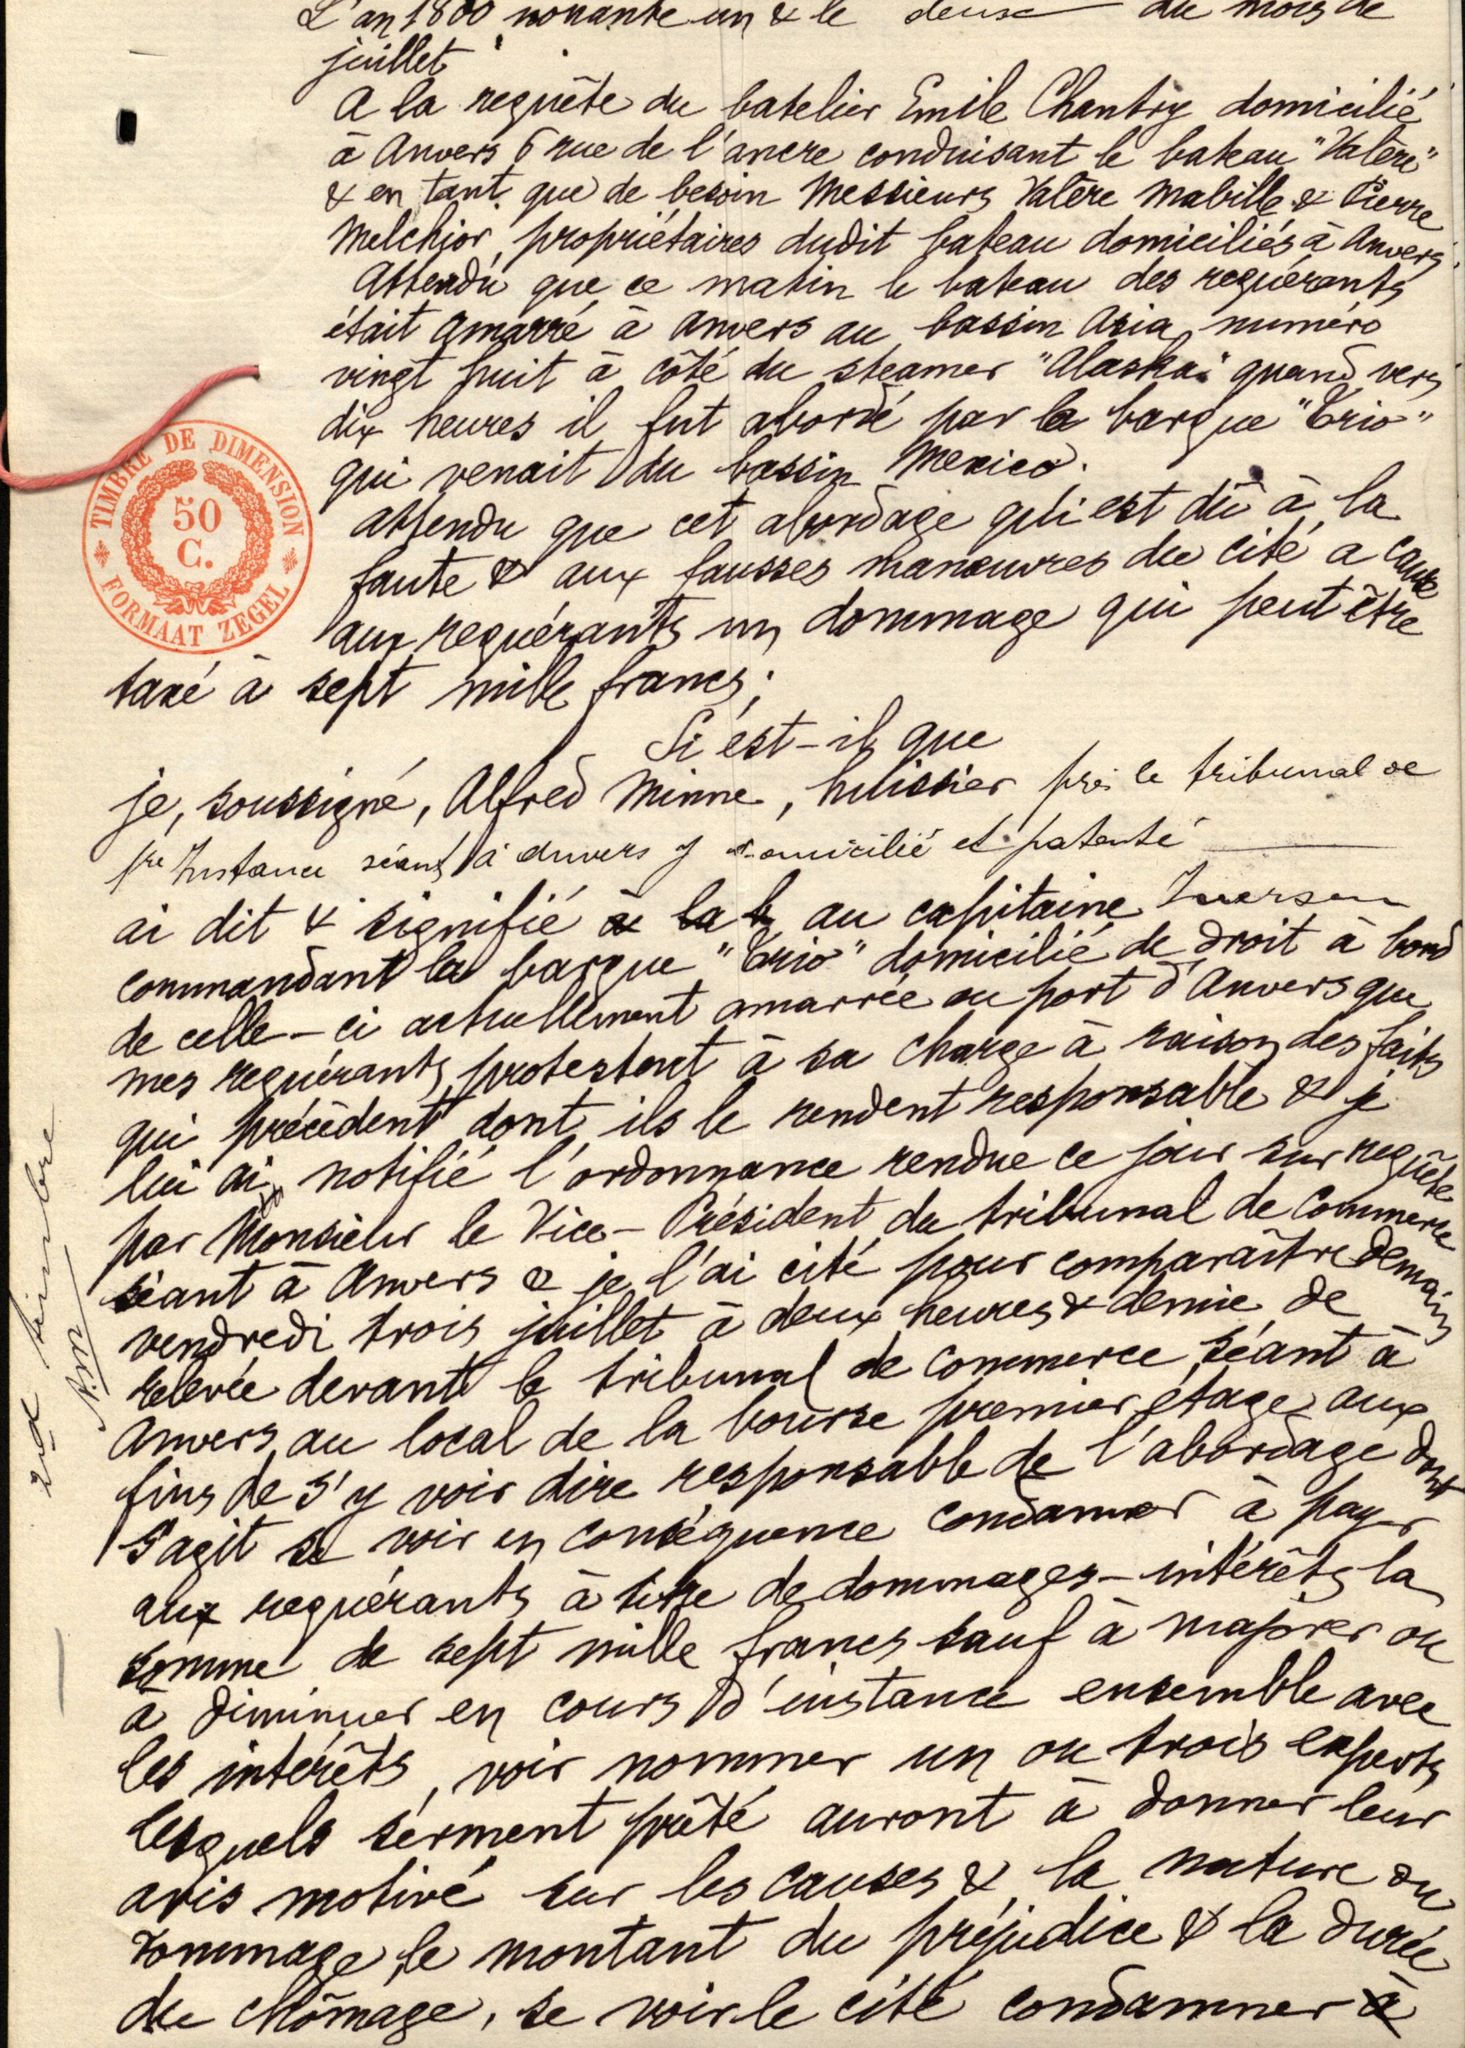 L'an 1800 nonante un & le deux du mois de
juillet
A la requête du batelier Emile Chantry domicilié
à Anvers 6 rue de l'ancre conduisant le bateau "Valère"
& en tant que de besoin Messieurs Valère Mabille & Pierre
Melchior, propriétaires dudit bateau domiciliés à Anvers.
Attendu que ce matin le bateau des requérants
était amarré à Anvers au bassin Asia, numéro
vingt huit à côté du steamer "Alaska" quand vers
dix heures il fut abordé par la barque "Trio"
qui venait du bassin Mexico.
Attendu que cet abordage qui est dû à la
faute & aux fausses manœuvres du cité a causé
aux requérants un dommage qui peut être
taxé à sept mille francs;
Si est-il que
je, soussigné, Alfred Minne, huissier près le tribunal de
1re Instance séant à Anvers y domicilié et patenté
ai dit & signifié à la b au capitaine Iversen
commandant la barque "Trio" domicilié de droit à bord
de celle-ci actuellement amarrée au port d'Anvers que
mes requérants protestent à sa charge à raison des faits
qui précèdent dont ils le rendent responsable & je
lui ai notifié l'ordonnance rendue ce jour sur requête
par Monsieur le Vice-Président du tribunal de Commerce
séant à Anvers & je l'ai cité pour comparaître demain
vendredi trois juillet à deux heures & demie de
relevée devant le tribunal de commerce séant à
Anvers, au local de la bourse premier étage, aux
fins de s'y voir dire responsable de l'abordage dont
s'agit se voir en conséquence condamner à payer
aux requérants à titre de dommages-intérêts la
somme de sept mille francs sauf à majorer ou
à diminuer en cours d'instance ensemble avec
les intérêts, voir nommer un ou trois experts
lesquels serment prêté auront à donner leur
avis motivé sur les causes & la nature du
dommage, le montant du préjudice & la durée
du chômage, se voir le cité condamner à
TIMBRE DE DIMENSION
50
C.
FORMAAT ZEGEL
2nd timbre
A.M